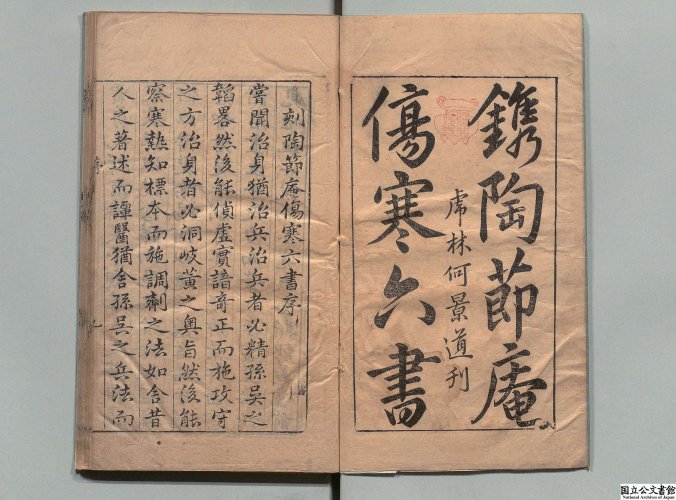 鐫陶節庵
傷寒六書
虎林何景道刊
刻陶節庵傷寒六書序
嘗聞治身猶治兵治兵者必精孫吳之
韜畧然後能偵虛實諳竒正而施攻守
之方治身者必洞岐黃之奧旨然後能
察寒熱知標本而施調劑之法如舎昔
人之著述而譚醫猶舎孫吳之兵法而
序
国立公文書館
National Archives of Japan